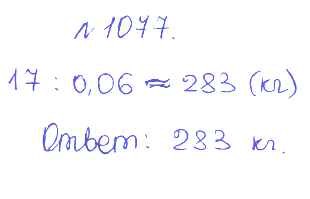 № 1077.
17 : 0,06 ≈ 283 (кг)
Ответ: 283 кг.